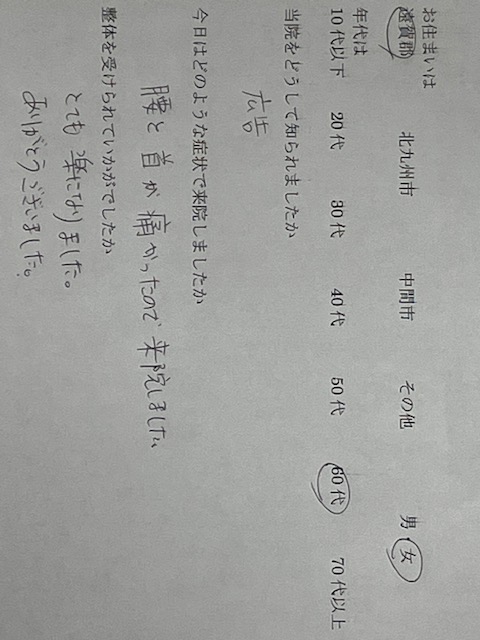 お住まいは
遠賀郡 北九州市 中間市 その他 男 女
年代は
10代以下 20代 30代 40代 50代 60代 70代以上
当院をどうして知られましたか
広告
今日はどのような症状で来院しましたか
腰と首が痛かったので来院しました
整体を受けられていかがでしたか
とても楽になりました。
ありがとうございました。